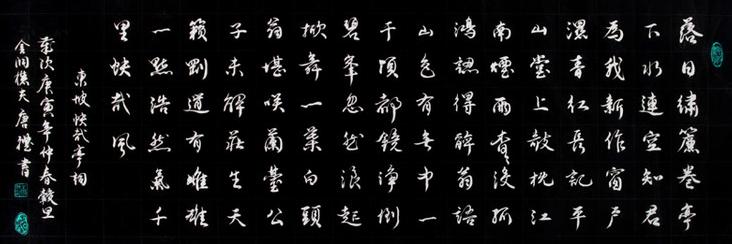 落日繡簾卷亭
下水連空知君
為我新作窗戶
濕青紅長記平
山堂上敧枕江
南煙雨杳〻没孤
鴻認得醉翁語
山色有無中一
千頃都鏡淨倒
碧峯忽然浪起
掀舞一葉白頭
翁堪咲蘭臺公
子未解莊生天
籟剛道有雌雄
一點浩然氣千
里快哉風
東坡快哉亭詞
歲次庚寅年仲春穀旦
樵夫唐禮書